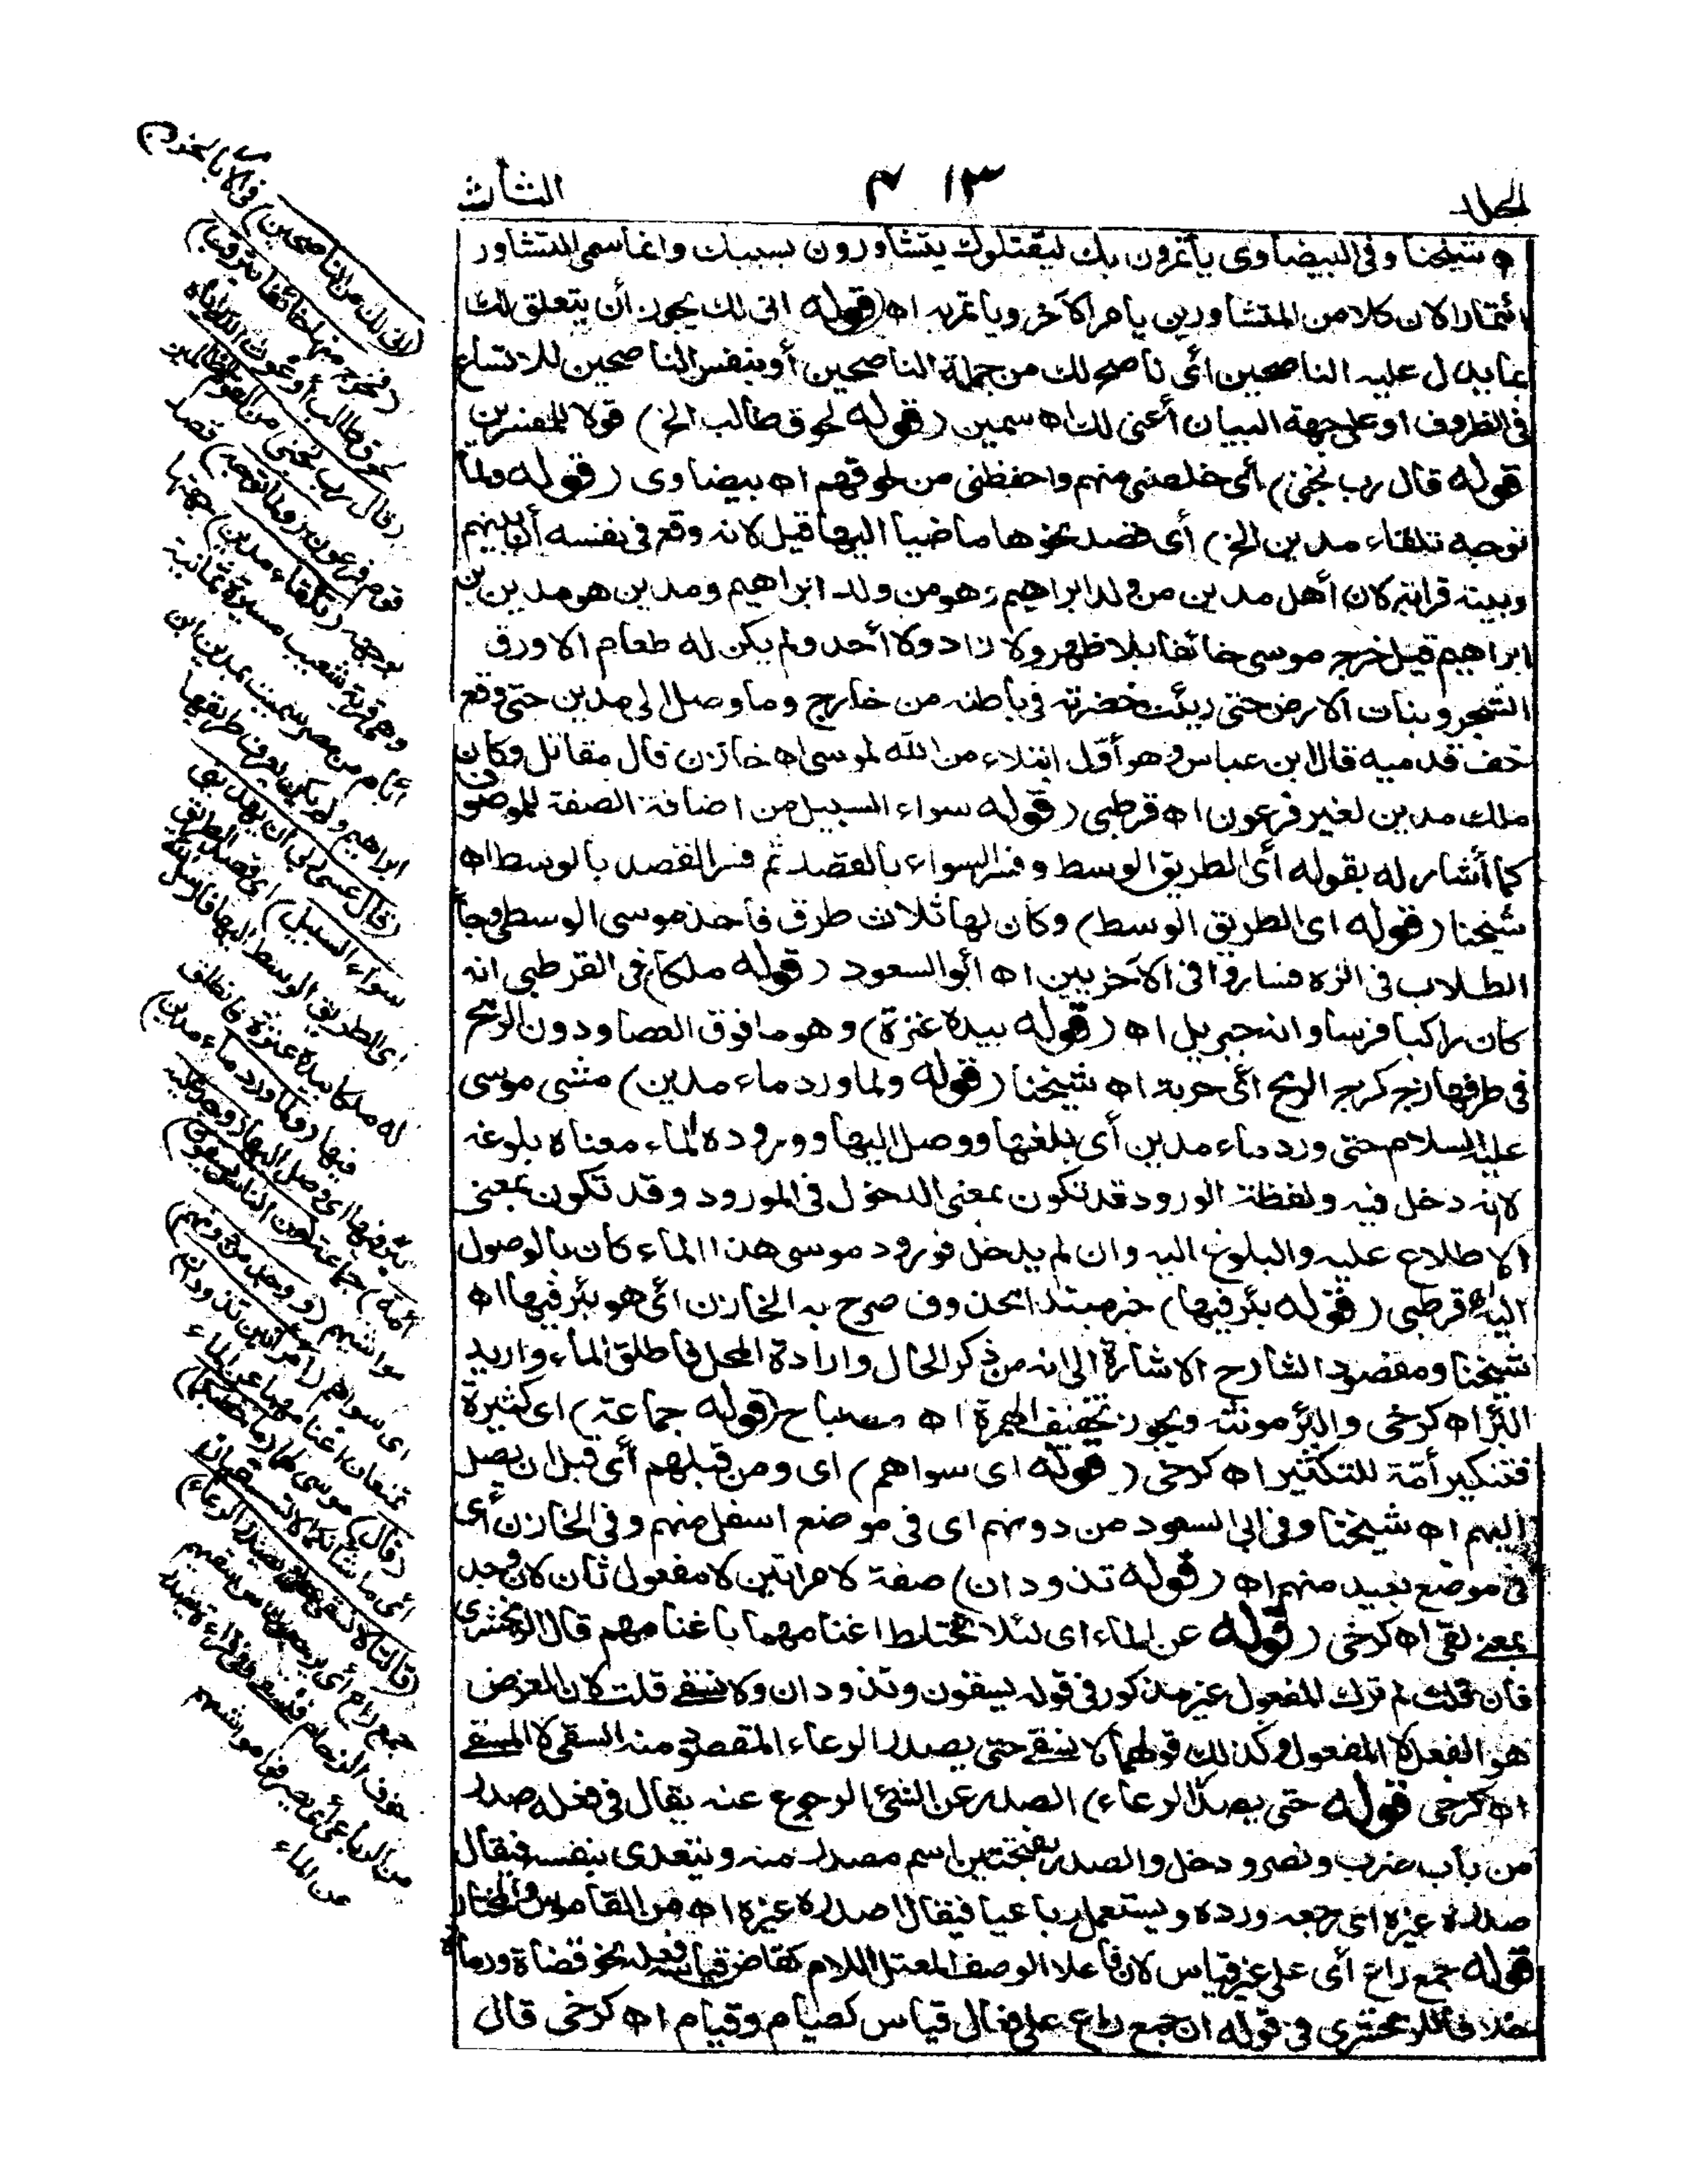 الجلد
٣١٣
الثالث
اه شيخنا وفى البيضاوى يأتمرون بك ليقتلوك يتشاورون بسببك وانما سمى التشاور
ائتمارا لان كلا من المتشاورين يامر الآخر وياتمر به اه (قوله انى لك يجوز أن يتعلق لك
بما يدل عليه الناصحين أى ناصح لك من جملة الناصحين أو بنفس الناصحين للاتساع
فى الظروف او على جهة البيان أعنى لك اه سمين (قوله لحوق طالب الخ) قولا للمفسرين
قوله قال رب نجنى) أى خلصنى منهم واحفظنى من لحوقهم اه بيضاوى (قوله ولما
توجه تلقاء مدين الخ) أى قصد نحوها ماضيا اليها قيل لانه وقع فى نفسه أن بينهم
وبينه قرابة لان أهل مدين من ولد ابراهيم وهو من ولد ابراهيم ومدين هو مدين بن
ابراهيم قيل خرج موسى خائفا بلا ظهر ولا زاد ولا أحد ولم يكن له طعام الا ورق
الشجر ونبات الارض حتى ريئت خضرته فى باطنه من خارج وما وصل الى مدين حتى وقع
خف قدميه قال ابن عباس وهو أول ابتلاء من الله لموسى اه خازن قال مقاتل وكان
ملك مدين لغير فرعون اه قرطبى (قوله سواء السبيل من اضافة الصفة للموصوف
كما أشار له بقوله أى الطريق الوسط وفسر السواء بالقصد ثم فسر القصد بالوسط اه
شيخنا (قوله اى الطريق الوسط) وكان لها ثلاث طرق فأخذ موسى الوسطى وجاء
الطلاب فى اثره فساروا فى الآخريين اه أبو السعود (قوله ملكا) فى القرطبى انه
كان راكبا فرسا وانه جبريل اه (قوله بيده عنزة) وهو ما فوق العصا ودون الرمح
فى طرفها زج كزج الرمح أى حربة اه شيخنا (قوله ولما ورد ماء مدين) مشى موسى
عليه السلام حتى ورد ماء مدين أى بلغها ووصل اليها ووروده الماء معناه بلوغه
لانه دخل فيه ولفظة الورود قد تكون بمعنى الدخول فى المورود وقد تكون بمعنى
الاطلاع عليه والبلوغ اليه وان لم يدخل فورود موسى هذا الماء كان بالوصول
اليه اه قرطبى (قوله بئر فيها) خبر مبتدا محذوف صرح به الخازن أى هو بئر فيها اه
شيخنا ومقصود الشارح الاشارة الى انه من ذكر الحال وارادة المحل فأطلق الماء واريد
البئر اه كرخى والبئر مونثة ويجوز تخفيف الهمزة اه مصباح (قوله جماعة) اى كثيرة
فتنكير أمة للتكثير اه كرخى (قوله اى سواهم) اى ومن قبلهم أى قبل ان يصل
اليهم اه شيخنا وفى ابى السعود من دونهم اى فى موضع اسفل منهم وفى الخازن أى
فى موضع بعيد منهم اه (قوله تذودان) صفة لامراتين لا مفعول ثان لان وجد
بمعنى لقى اه كرخى (قوله عن الماء اى لئلا تختلط اغنامهما باغنامهم قال الزمخشرى
فان قلت لم ترك المفعول غير مذكور فى قوله يسقون وتذودان ولا نسقى قلت لان الغرض
هو الفعل لا المفعول وكذلك قولهما لا نسقى حتى يصدر الرعاء المقصود منه السقى لا المسقى
اه كرخى قوله حتى يصدر الرعاء) الصدر عن الشئ الرجوع عنه يقال فى فعله صدر
من باب ضرب ونصر ودخل والصدر بفتحتين اسم مصدر منه ويتعدى بنفسه فيقال
صدره غيره اى رجعه ورده ويستعمل رباعيا فيقال اصدره غيره اه من القاموس والمختار
قوله جمع راع أى على غير قياس لان فاعلا الوصف المعتل اللام كقاض قياسه فعلة نحو قضاة ورماة
خلافا للزمخشرى فى قوله ان جمع راع على فعال قياس كصيام وقيام اه كرخى قال
(انى لك من الناصحين) فى الامر بالخروج
(فخرج منها خائفا يترقب)
لحوق طالب أو غوث الله اياه
(قال رب نجنى من القوم الظالمين
قوم فرعون (ولما توجه) قصد
بوجهه (تلقاء مدين) جهتها
وهى قرية شعيب مسيرة ثمانية
أيام من مصر سميت بمدين ابن
ابراهيم ولم يكن يعرف طريقها
(قال عسى ربى أن يهدينى
سواء السبيل) اى قصد الطريق
اى الطريق الوسط اليها فارسل الله
له ملكا بيده عنزة فانطلق
فيها (ولما ورد ماء مدين)
بئر فيها اى وصل اليها (وجد عليه
أمة) جماعة (من الناس يسقون)
مواشيهم (ووجد من دونهم)
اى سواهم (امرأتين تذودان)
تمنعان اغنامهما عن الماء
(قال) موسى لهما (ما خطبكما)
أى ما شأنكما لا تسقيان
(قالتا لا نسقى حتى يصدر الرعاء)
جمع راع أى يرجعون من سقيهم
خوف الزحام فنسقى وفى قراءة يصدر
من الرباعى أى يصرفوا مواشيهم
عن الماء